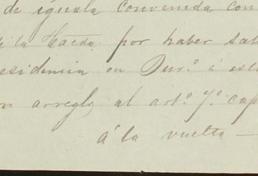 de iguala convenida con
de la Hacda. por haber sal
esidencia en Dur.º i est
n arreglo al art.º 7.º cap
á la vuelta —